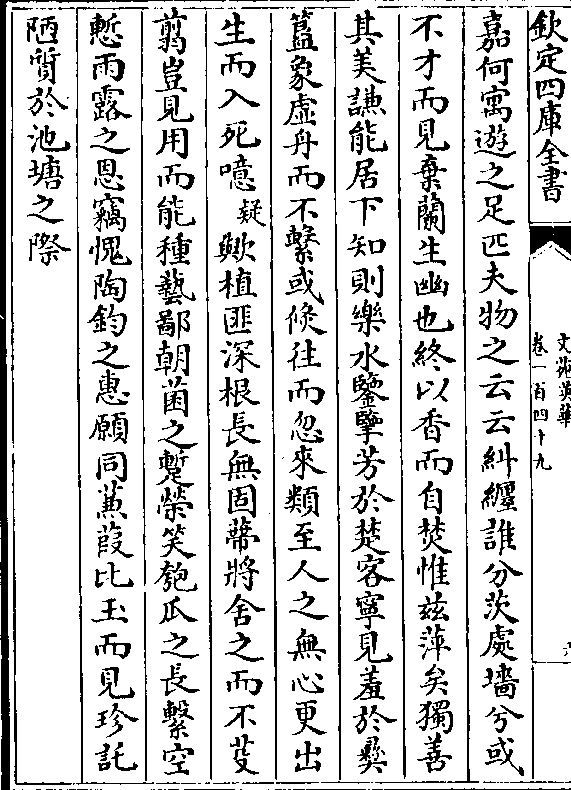 欽定四庫全書
文苑英華
卷一百四十九
嘉何寓遊之足匹夫物之云云糾纒誰分茨處墻兮或
不才而見棄蘭生幽也終以香而自焚惟兹萍矣獨善
其美謙能居下知則樂水鑒擥芳於楚客寧見羞於彛
簋象虚舟而不繫或倏往而忽來類至人之無心更出
生而入死噫疑歟植匪深根長無固蔕將舍之而不芟
翦豈見用而能種藝鄙朝菌之蹔榮笑匏瓜之長繫空
慙雨露之恩竊愧陶鈞之惠願同蒹葭比玉而見珍託
陋質於池塘之際